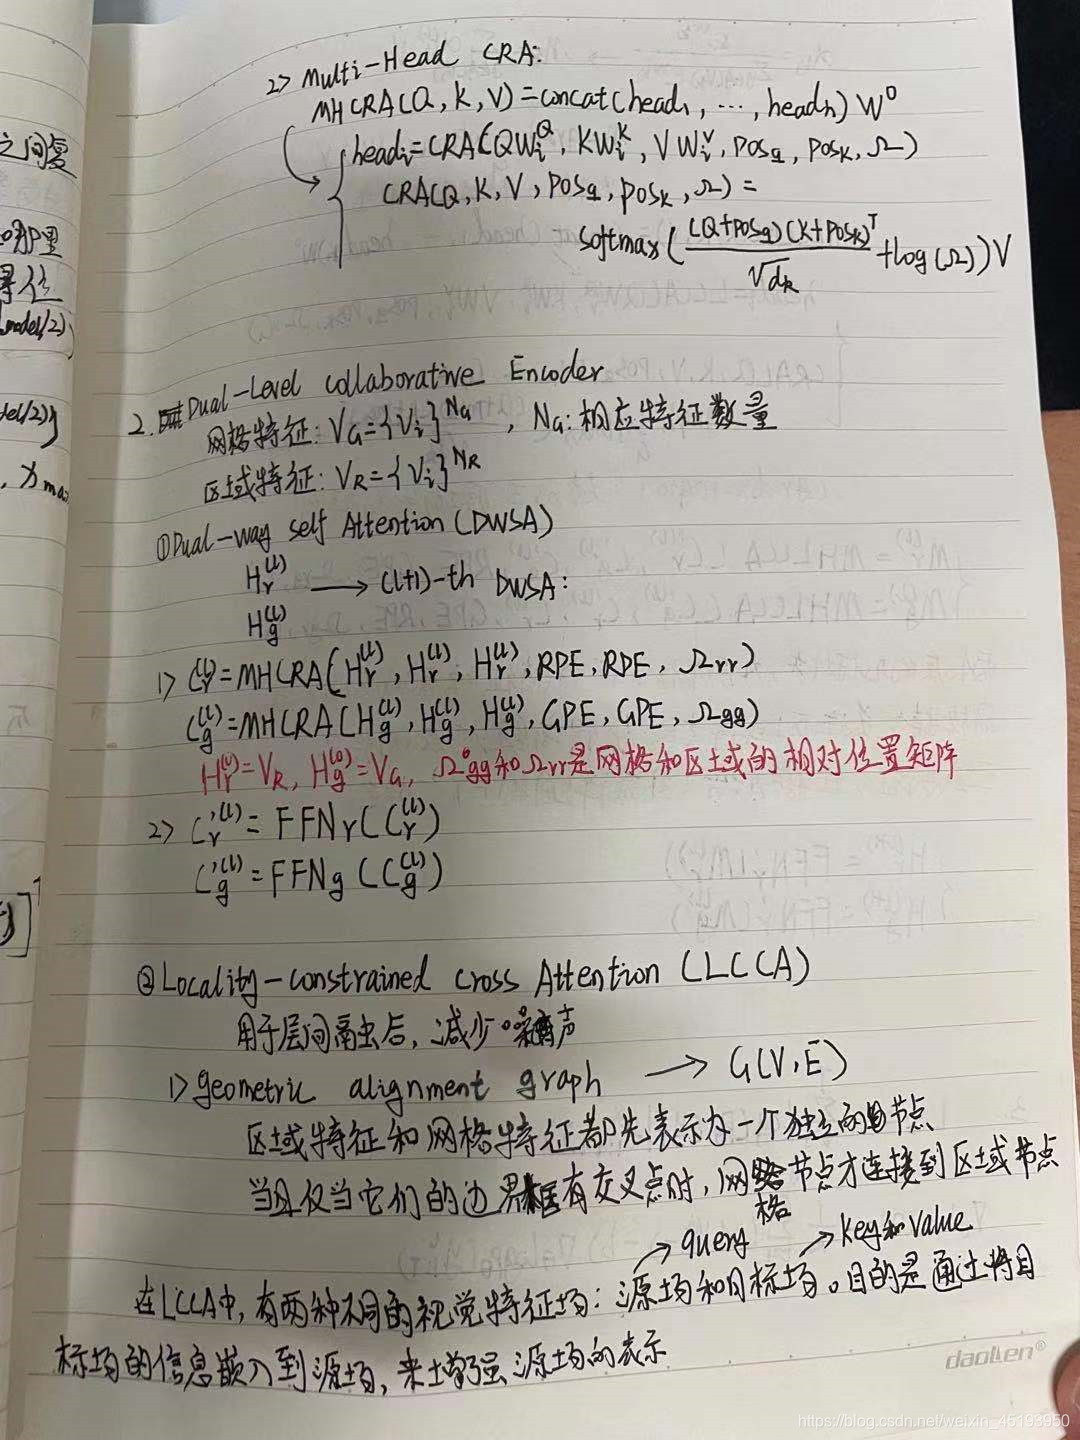 2> Multi-Head CRA:
MHCRA(Q, K, V)=concat(head₁, ..., headₕ) W⁰
headᵢ=CRA(QWᵢ^Q, KWᵢ^K, VWᵢ^V, POS_q, POS_K, Ω)
CRA(Q, K, V, POS_q, POS_K, Ω) =
Softmax( (Q+POS_q)(K+POS_K)^T / √d_K +log(Ω))V
2. Dual-Level collaborative Encoder
网格特征: V_G={Vᵢ}^{N_G}, N_G: 相应特征数量
区域特征: V_R={Vᵢ}^{N_R}
①Dual-way self Attention (DWSA)
H_r^{(l)}
⟶ (l+1)-th DWSA:
H_g^{(l)}
1> C_r^{(l)}=MHCRA(H_r^{(l)}, H_r^{(l)}, H_r^{(l)}, RPE, RPE, Ω_rr)
C_g^{(l)}=MHCRA(H_g^{(l)}, H_g^{(l)}, H_g^{(l)}, GPE, GPE, Ω_gg)
H_r^{(0)}=V_R, H_g^{(0)}=V_G, Ω_gg和Ω_rr是网格和区域的相对位置矩阵
2> C_r'^{(l)}=FFN_r(C_r^{(l)})
C_g'^{(l)}=FFN_g(C_g^{(l)})
②Locality-constrained Cross Attention (LCCA)
用于层间融虫后, 减少噪声
1> geometric alignment graph ⟶ G(V,E)
区域特征和网格特征都先表示为一个独立的节点
当且仅当它们的边界框有交叉点时, 网格节点才连接到区域节点
→ query → key和value
在LCCA中, 有两种不同的视觉特征场: 源场和目标场。目的是通过将目
标场的信息嵌入到源场, 来增强源场的表示
之间复
那里
model/2)
del/2)
daolen®
https://blog.csdn.net/weixin_45193950